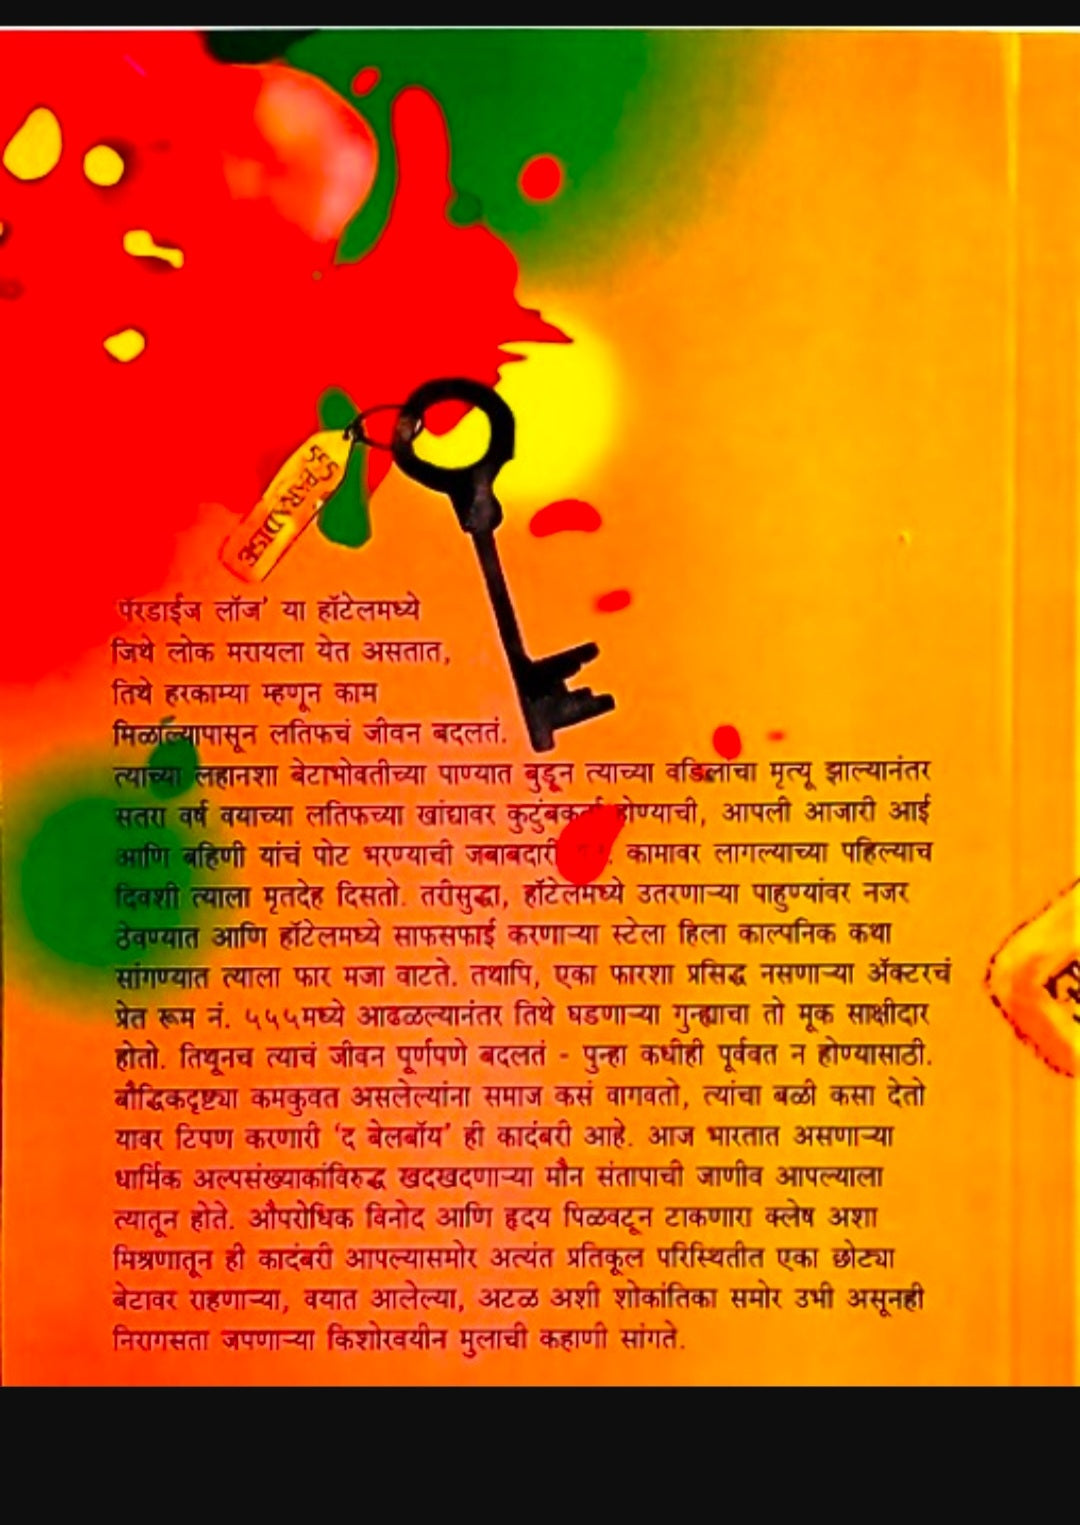 555
PARADISE
पॅरडाईज लॉज' या हॉटेलमध्ये
जिथे लोक मरायला येत असतात,
तिथे हरकाम्या म्हणून काम
मिळाल्यापासून लतिफचं जीवन बदलतं.
त्याच्या लहानशा बेटाभोवतीच्या पाण्यात बुडून त्याच्या वडिलांचा मृत्यू झाल्यानंतर
सतरा वर्ष वयाच्या लतिफच्या खांद्यावर होण्याची, आपली आजारी आई
आणि बहिणी यांचं पोट भरण्याची जबाबदारी कामावर लागल्याच्या पहिल्याच
दिवशी त्याला मृतदेह दिसतो. तरीसुद्धा, हॉटेलमध्ये उतरणाऱ्या पाहुण्यांवर नजर
ठेवण्यात आणि हॉटेलमध्ये साफसफाई करणाऱ्या स्टेला हिला काल्पनिक कथा
सांगण्यात त्याला फार मजा वाटते. तथापि, एका फारशा प्रसिद्ध नसणाऱ्या ॲक्टरचं
प्रेत रूम नं. ५५५मध्ये आढळल्यानंतर तिथे घडणाऱ्या गुन्ह्याचा तो मूक साक्षीदार
होतो. तिथूनच त्याचं जीवन पूर्णपणे बदलतं - पुन्हा कधीही पूर्ववत न होण्यासाठी.
बौद्धिकदृष्ट्या कमकुवत असलेल्यांना समाज कसं वागवतो, त्यांचा बळी कसा देतो
यावर टिपण करणारी 'द बेलबॉय' ही कादंबरी आहे. आज भारतात असणाऱ्या
धार्मिक अल्पसंख्याकांविरुद्ध खदखदणाऱ्या मौन संतापाची जाणीव आपल्याला
त्यातून होते. औपरोधिक विनोद आणि हृदय पिळवटून टाकणारा क्लेष अशा
मिश्रणातून ही कादंबरी आपल्यासमोर अत्यंत प्रतिकूल परिस्थितीत एका छोट्या
बेटावर राहणाऱ्या, वयात आलेल्या, अटळ अशी शोकांतिका समोर उभी असूनही
निरागसता जपणाऱ्या किशोरवयीन मुलाची कहाणी सांगते.